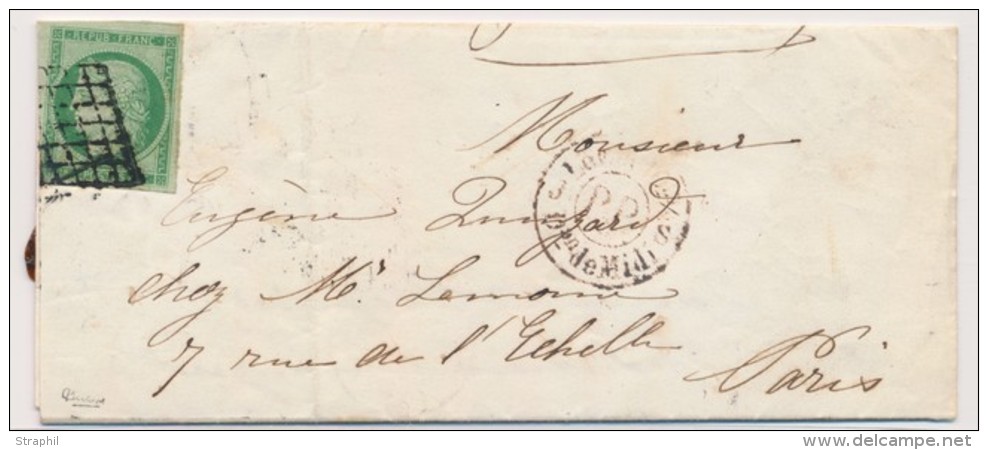 REPUB·FRANC·
Monsieur
Eugène
chez Mr. Lemoine
7 rue de l'Echelle
Paris
de Midi
Straphil
www.delcampe.net